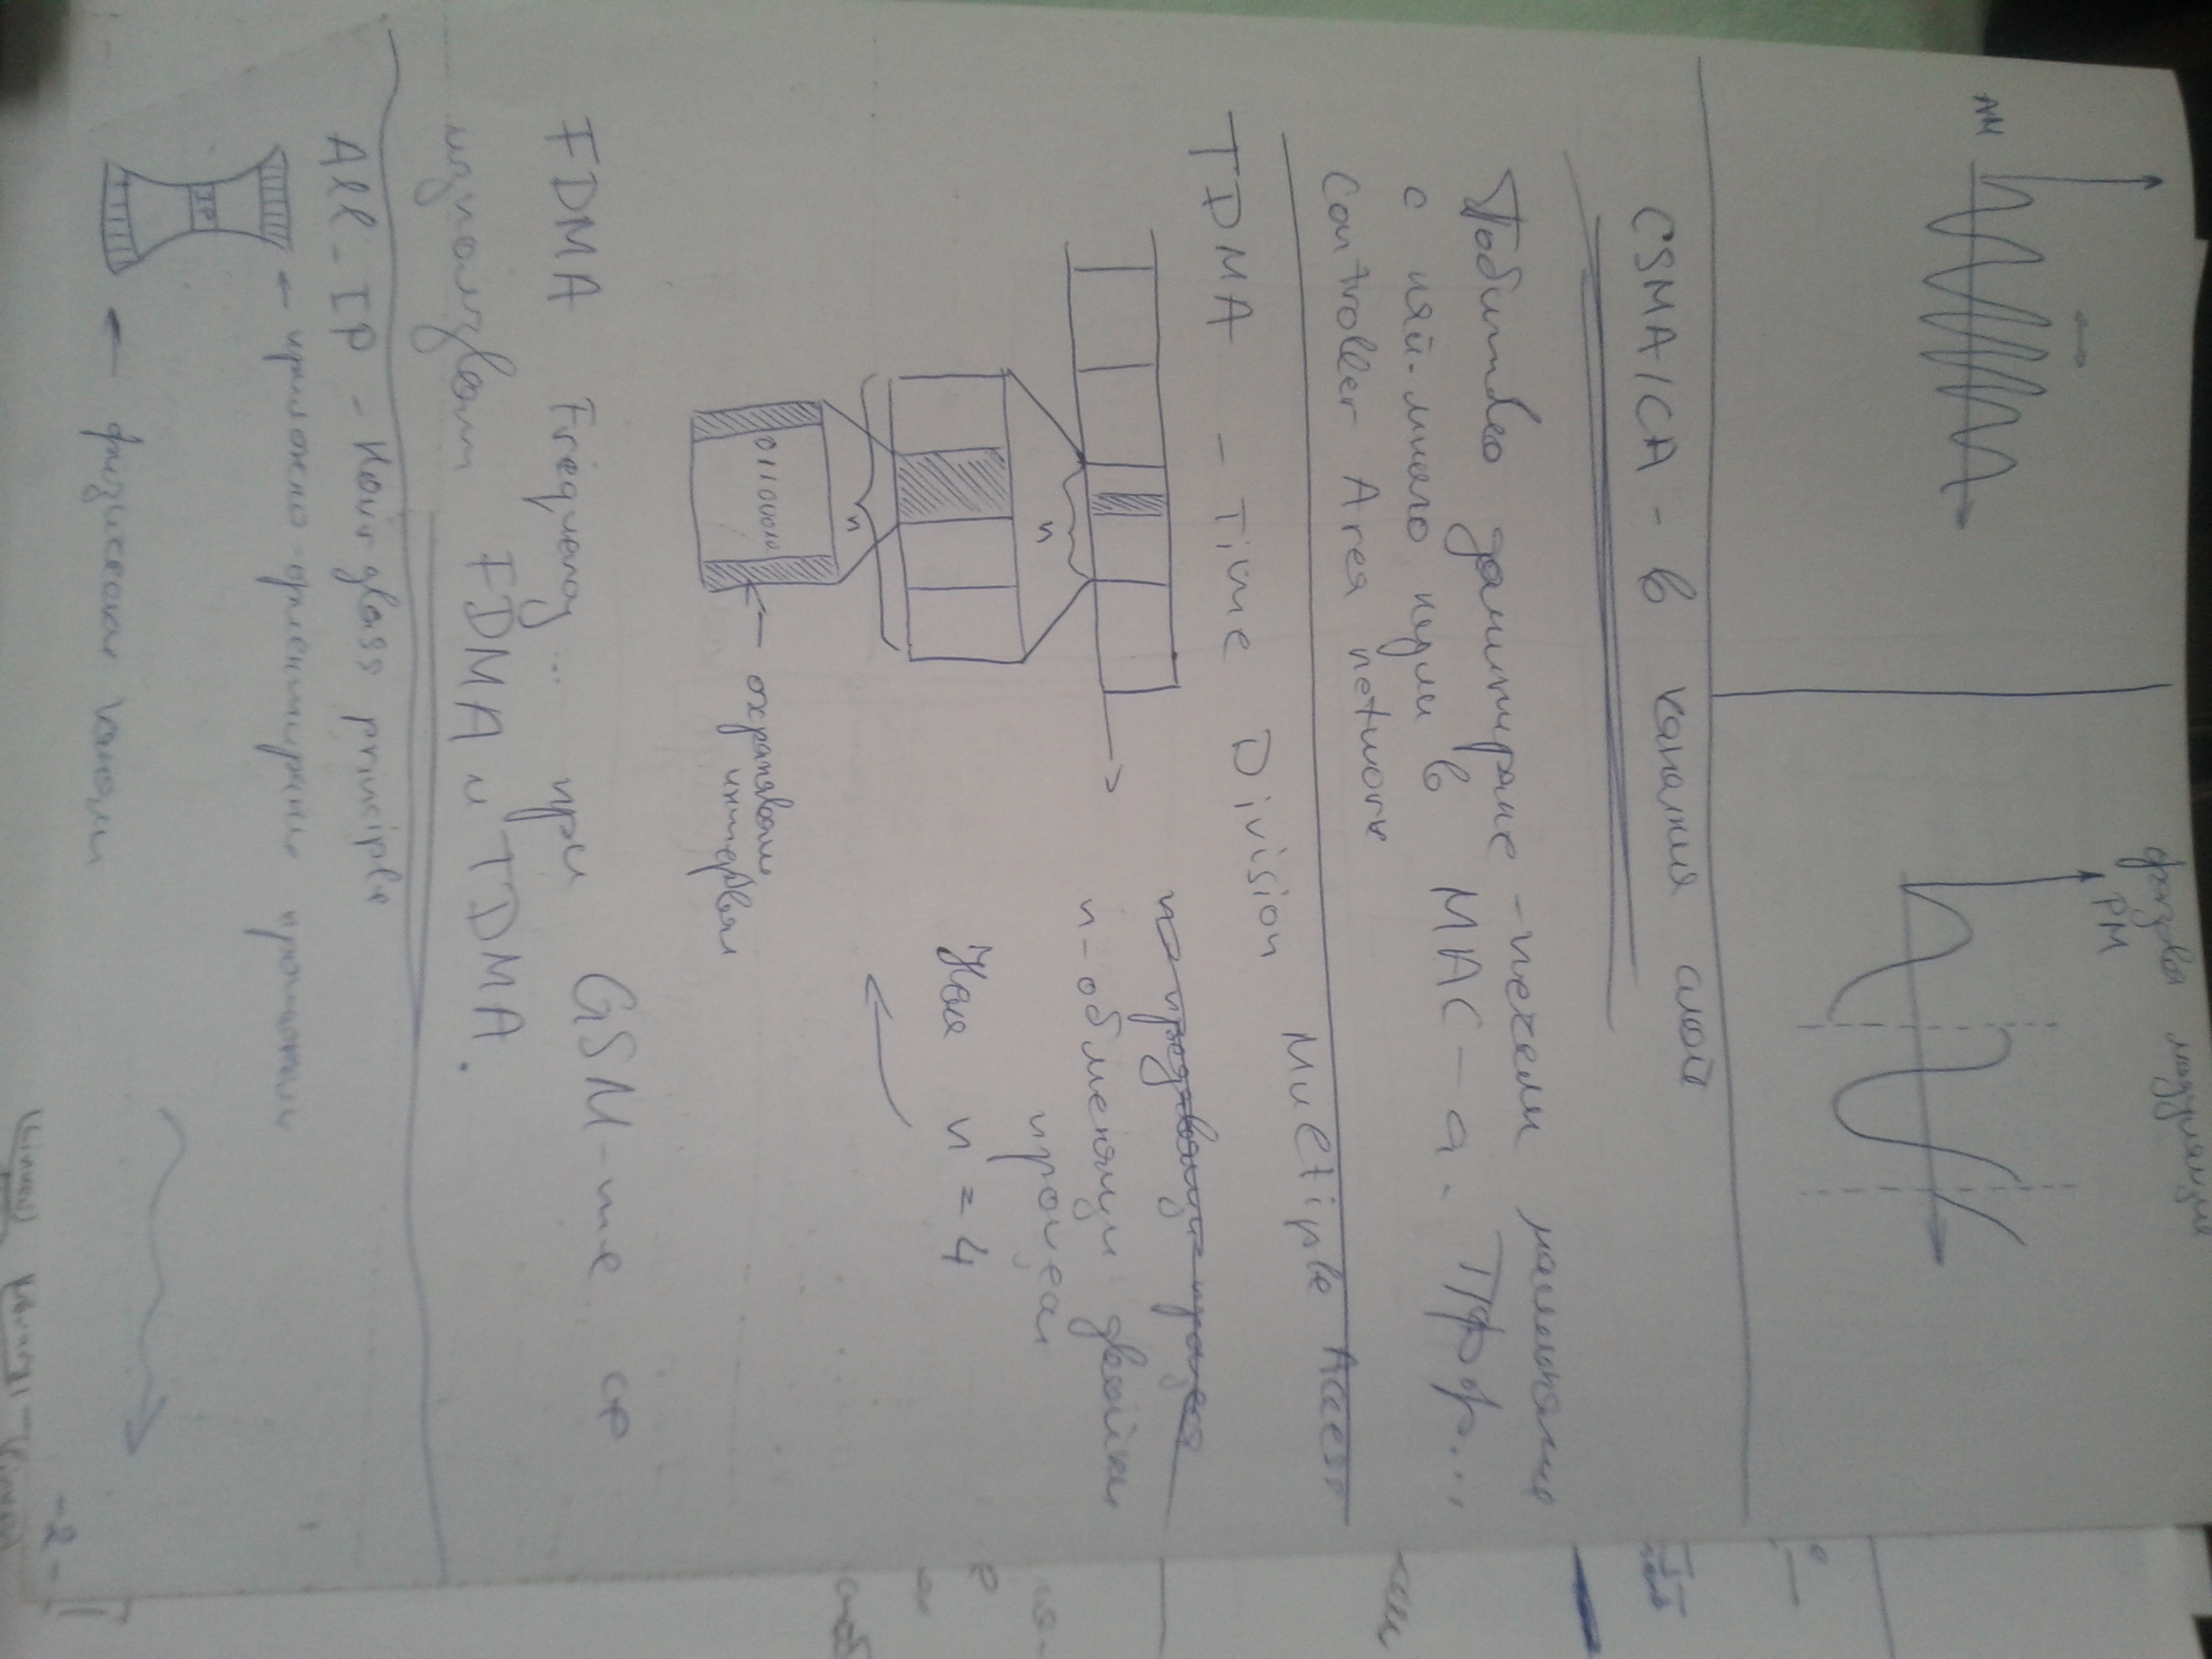 фазова модулация
PM
AM
CSMA/CA - в каналния слой
Побитово доминиране - печели машината
с най-много нули в MAC-а.
Controller Area network
TDMA - Time Division Multiple Access
n-обменящи двойки
процеси
n
Нека n = 4
n
охранявани
интервал
FDMA Frequency... при GSM-те се
използват FDMA и TDMA.
All-IP - Hourglass principle
← приложно-ориентирани протоколи
IP
← физически канали
-2-